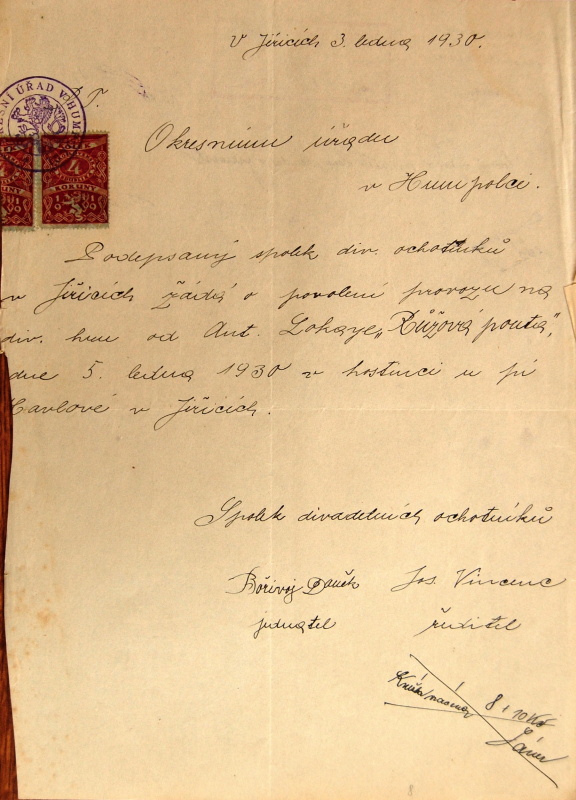 V Jiřicích 3. ledna 1930.
RESNÍ ÚŘAD V HUM
P. T.
4
KORUNY
Okresnímu úřadu
v Humpolci.
Podepsaný spolek div. ochotníků
v Jiřicích žádá o povolení provozu na
div. hru od Ant. Lokaye „Růžová pouta",
dne 5. ledna 1930 v hostinci u pí
Havlové v Jiřicích.
Spolek divadelních ochotníků
Bořivoj Daněk Jos. Vincenc
jednatel ředitel
8 + 10 Kč